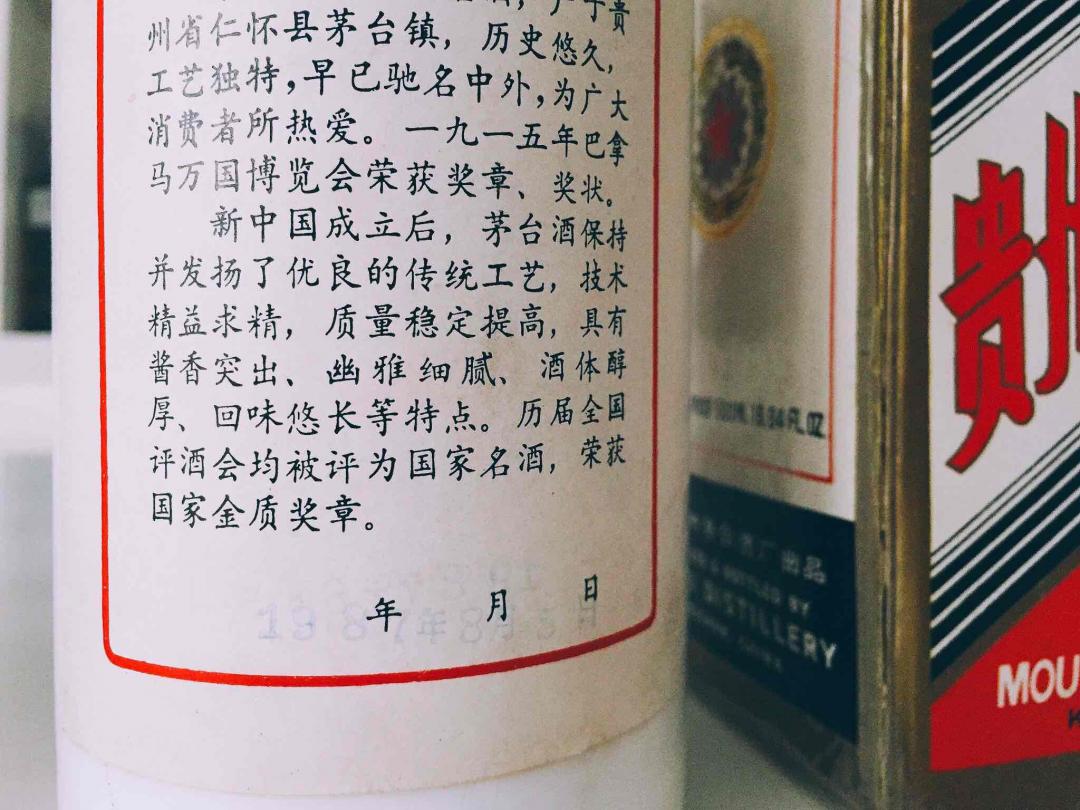 产于贵
州省仁怀县茅台镇，历史悠久，
工艺独特，早已驰名中外，为广大
消费者所热爱。一九一五年巴拿
马万国博览会荣获奖章、奖状。
新中国成立后，茅台酒保持
并发扬了优良的传统工艺，技术
精益求精，质量稳定提高，具有
酱香突出、幽雅细腻、酒体醇
厚、回味悠长等特点。历届全国
评酒会均被评为国家名酒，荣获
国家金质奖章。
年 月 日
1987年8月 日
FL.OZ
酒厂出品
BOTTLED BY
DISTILLERY
贵州
MOU